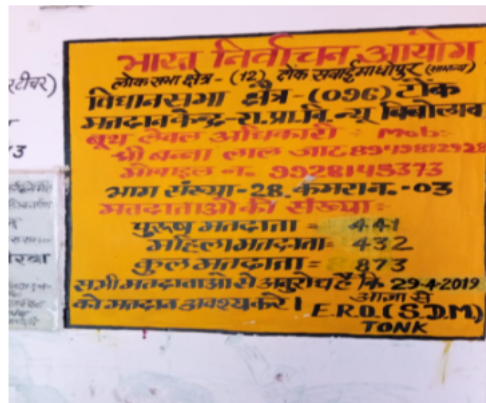 रटीचर)
3
भारत निर्वाचन आयोग
लोकसभा क्षेत्र - (12) टोंक सवाईमाधोपुर (सामान्य)
विधानसभा क्षेत्र - (096) टोंक
मतदान केन्द्र - रा.प्रा.वि. न्यू
बूथ लेवल अधिकारी : Mob:-
श्री बन्ना लाल जाट 8949812928
मोबाइल न. 9928145373
भाग संख्या - 28, कमरा न. - 03
मतदाताओ की संख्या :-
पुरुष मतदाता = 441
महिला मतदाता = 432
कुल मतदाता = 873
सभी मतदाताओ से अनुरोध है कि 29-4-2019
को मतदान अवश्य करे। आज्ञा से
E.R.O. (S.D.M.)
TONK